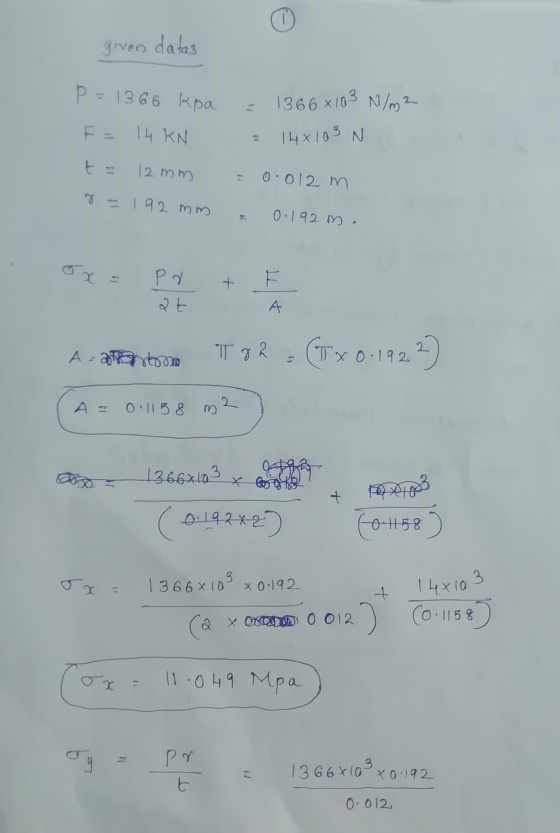 1
given datas
P = 1366 kpa = 1366×10³ N/m²
F = 14 KN = 14×10³ N
t = 12 mm = 0.012 m
r = 192 mm = 0.192 m.
σx = Pr/2t + F/A
A = πr2 = (π×0.192²)
A = 0.1158 m²
= 1366×10³ × / (0.192×2) + 14×10³ / (0.1158)
σx = 1366×10³ ×0.192 / (2 × 0.012) + 14×10³ / (0.1158)
σx = 11.049 Mpa
σy = pr/t = 1366×10³×0.192 / 0.012